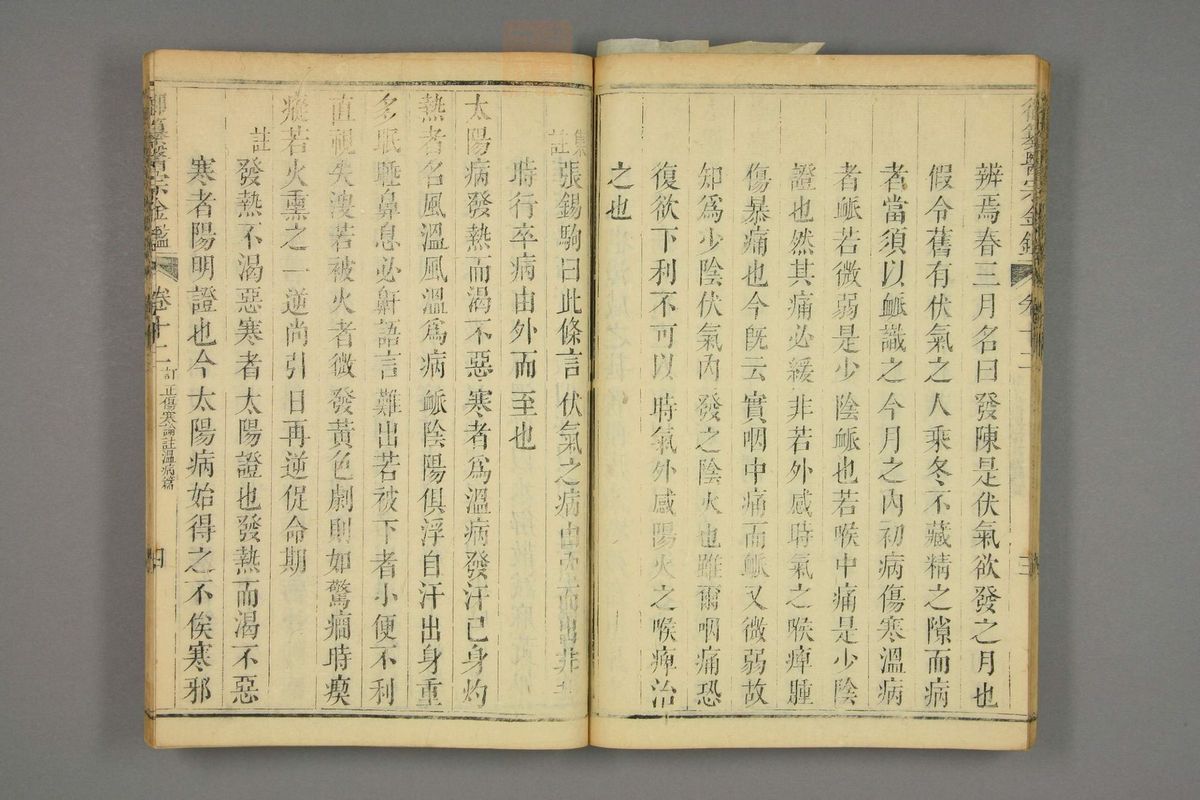 辨焉春三月名曰發陳是伏氣欲發之月也
假令舊有伏氣之人乘冬不藏精之隙而病
者當須以脈識之今月之內初病傷寒溫病
者脈若微弱是少陰脈也若喉中痛是少陰
證也然其痛必緩非若外感時氣之喉痺腫
傷暴痛也今旣云實咽中痛而脈又微弱故
知爲少陰伏氣內發之陰火也雖爾咽痛恐
復欲下利不可以時氣外感陽火之喉痺治
之也
集註張錫駒曰此條言伏氣之病由內而出非若
時行卒病由外而至也
太陽病發熱而渴不惡寒者爲溫病發汗已身灼
熱者名風溫風溫爲病脈陰陽俱浮自汗出身重
多眠睡鼻息必鼾語言難出若被下者小便不利
直視失溲若被火者微發黃色劇則如驚癇時瘈
瘲若火熏之一逆尚引日再逆促命期
註發熱不渴惡寒者太陽證也發熱而渴不惡
寒者陽明證也今太陽病始得之不俟寒邪
御纂醫宗金鑑 卷十二 訂正傷寒論註溫病篇 四